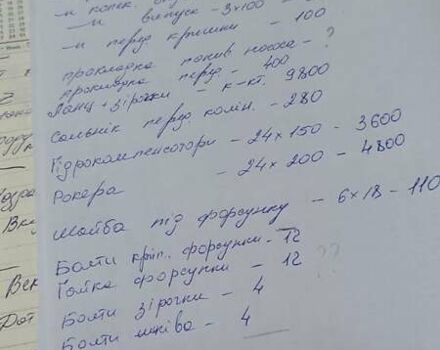 -и випуск - 3х100 -
-и перед. кришки - 100
прокладка помпи насоса - ?
прокладка перед. - 400
Ланц + зірочки - к-кт. 9800
Сальнік перед. колін. - 280
Гідрокомпенсатори - 24х150 - 3600
Рокера - 24х200 - 4800
Шайба під форсунку - 6х18 - 110
Болти кріп. форсунки - 12
Гайка форсунки - 12
??
Болти зірочки - 4
Болти шківа - 4
Вк
Век
Дот